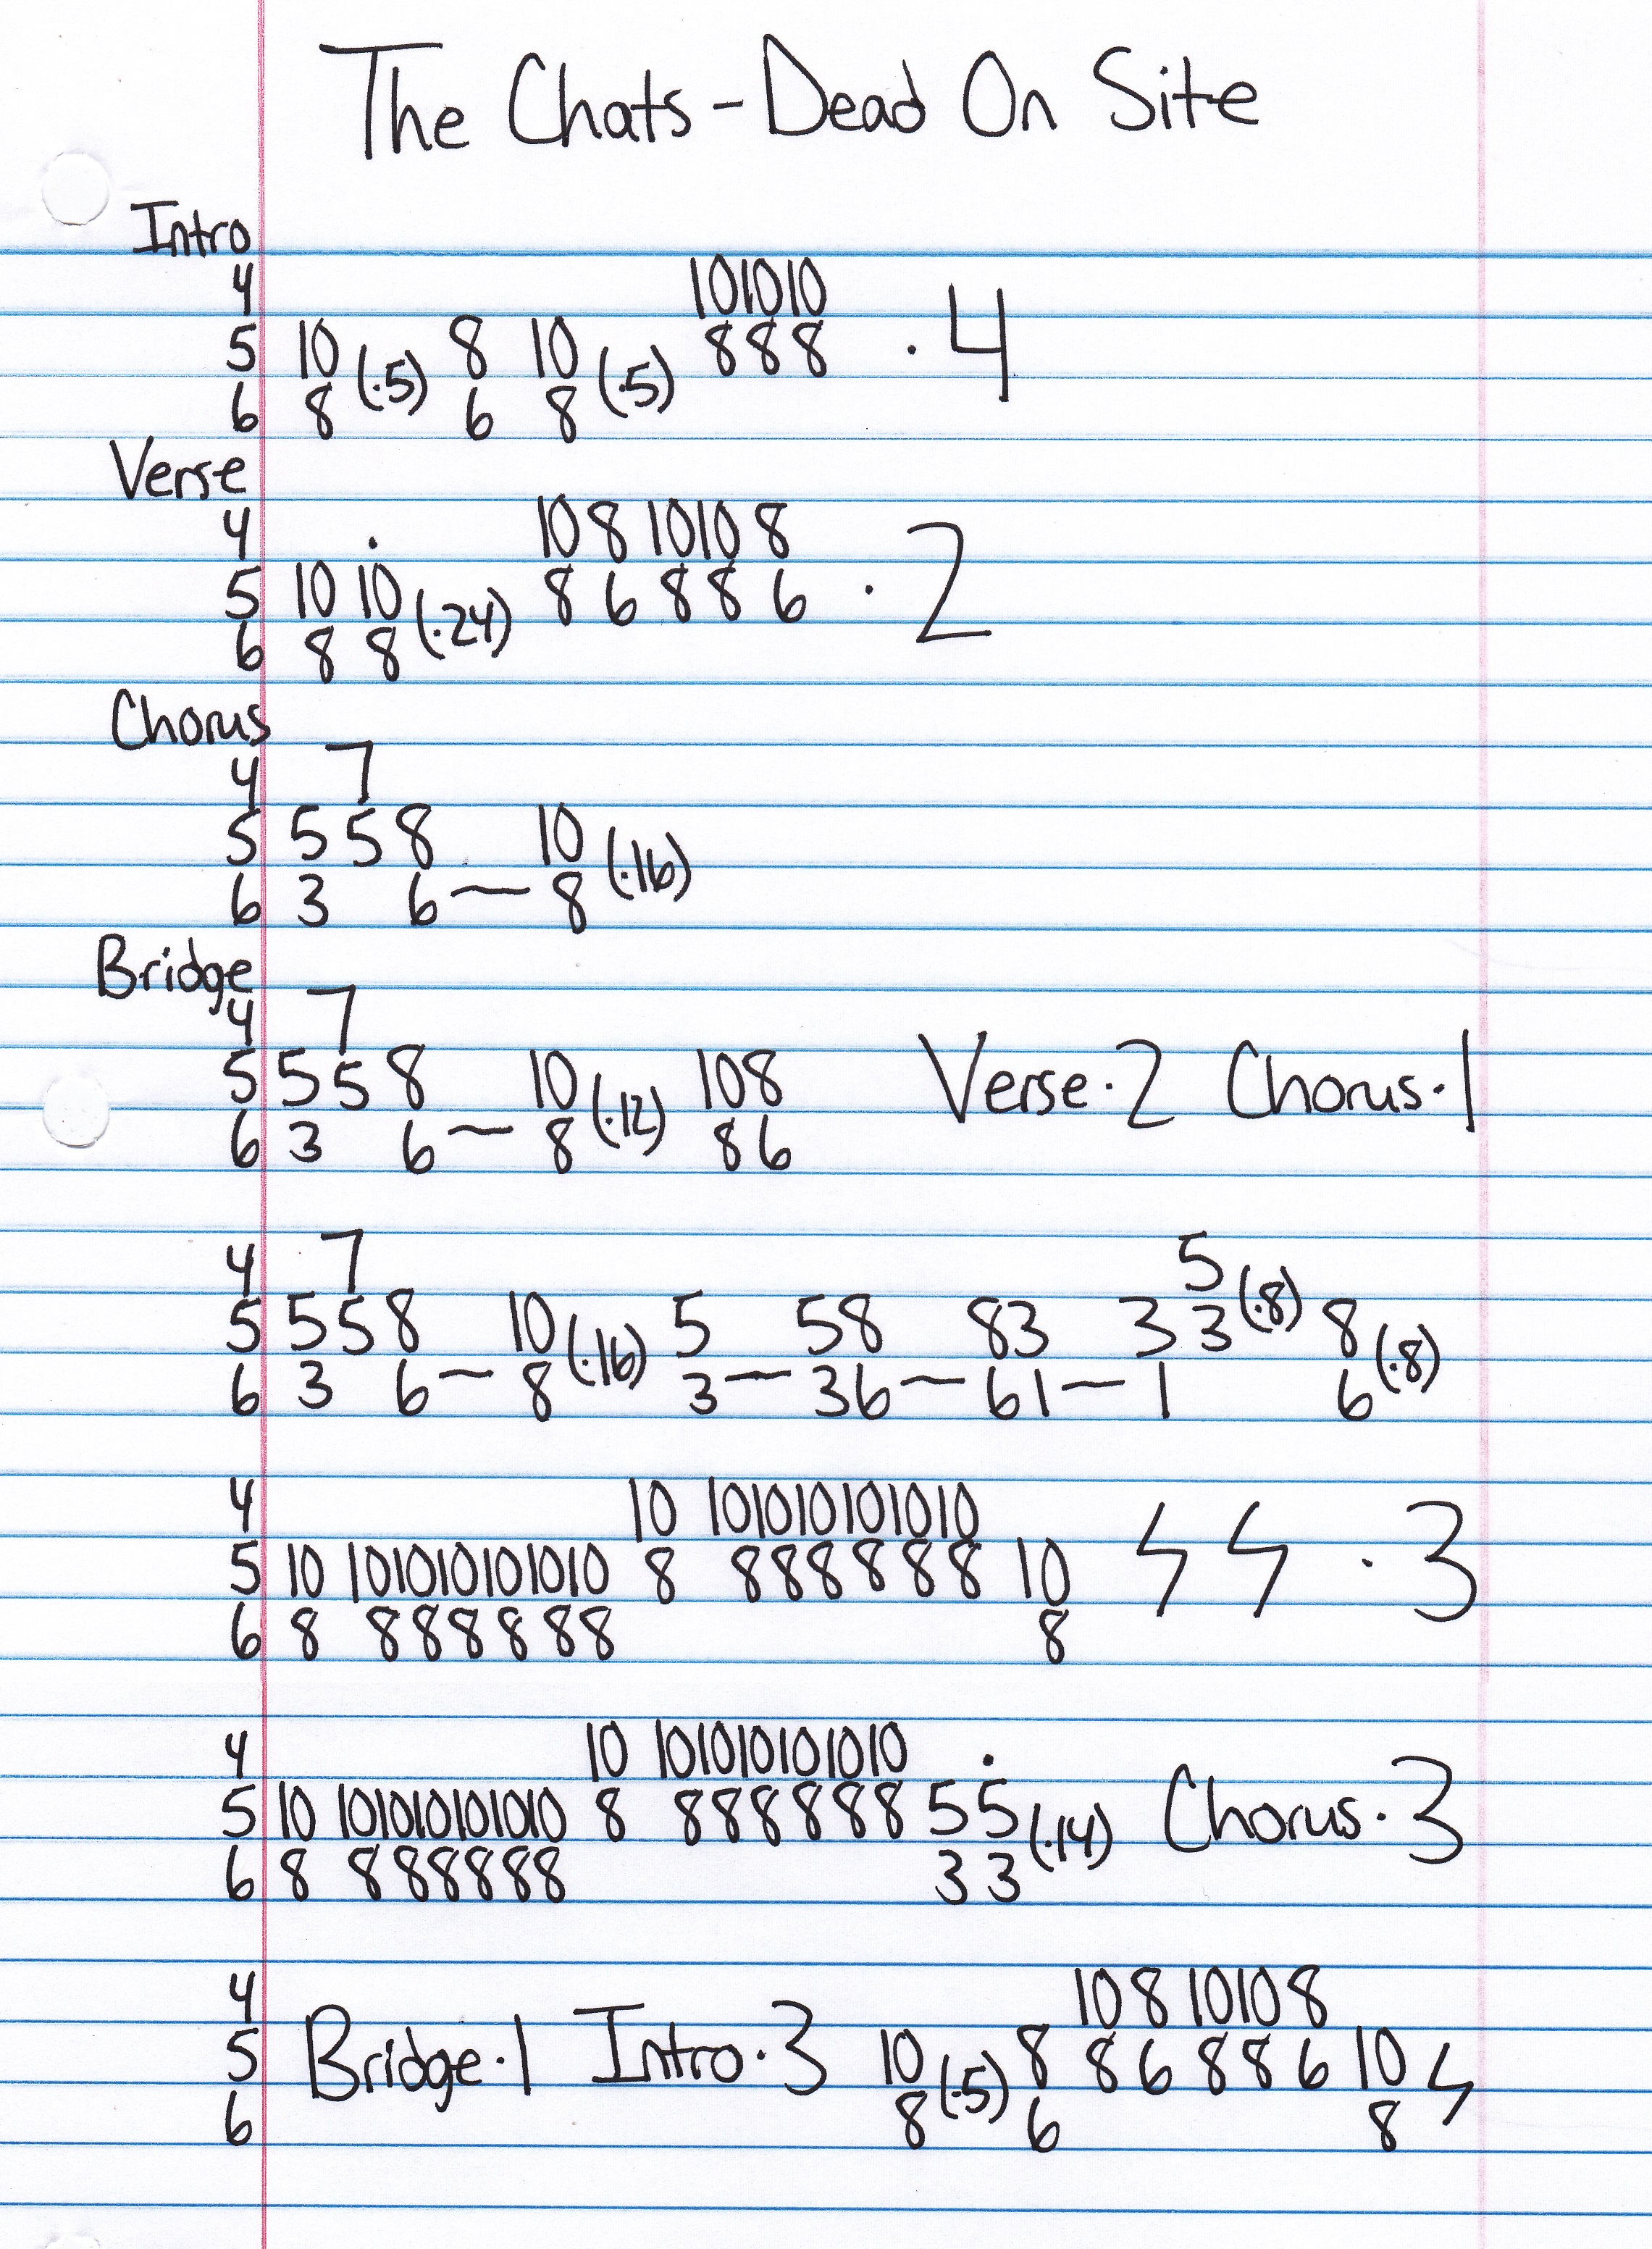 The Chats - Dead On Site
Intro
4 10 10 10
5 10 (·5) 8 10 (·5) 8 8 8 · 4
6 8 6 8
Verse
4 · 10 8 10 10 8
5 10 10 (·24) 8 6 8 8 6 · 2
6 8 8
Chorus
4 7
5 5 5 8 10 (·16)
6 3 6 ~ 8
Bridge
4 7
5 5 5 8 10 (·12) 10 8 Verse · 2 Chorus · 1
6 3 6 ~ 8 8 6
4 7 5
5 5 5 8 10 (·16) 5 5 8 8 3 3 3 (·8) 8
6 3 6 ~ 8 3 ~ 3 6 ~ 6 1 ~ 1 6 (·8)
4 10 10 10 10 10 10 10
5 10 10 10 10 10 10 10 8 8 8 8 8 8 8 10 ϟ ϟ · 3
6 8 8 8 8 8 8 8 8
4 10 10 10 10 10 10 10 ·
5 10 10 10 10 10 10 10 8 8 8 8 8 8 8 5 5 (·14) Chorus · 3
6 8 8 8 8 8 8 8 3 3
4 10 8 10 10 8
5 Bridge · 1 Intro · 3 10 (·5) 8 8 6 8 8 6 10 ϟ
6 8 6 8